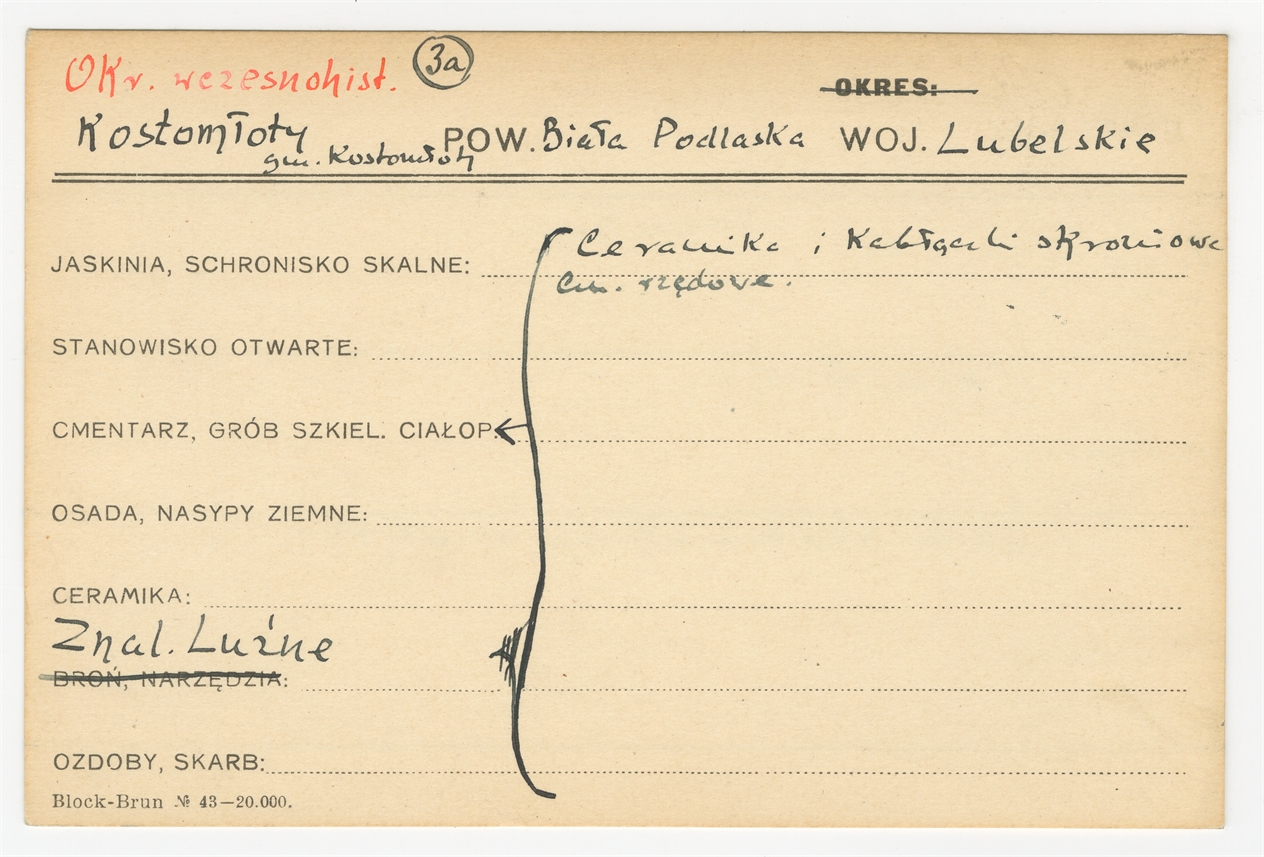 Okr. wczesnohist. 3a
OKRES:
Kostomłoty POW. Biała Podlaska WOJ. Lubelskie
gm. Kostomłoty
Ceramika i Kabłączki skroniowe
JASKINIA, SCHRONISKO SKALNE:
Cm. rzędowe.
STANOWISKO OTWARTE:
CMENTARZ, GRÓB SZKIEL. CIAŁOP.
OSADA, NASYPY ZIEMNE:
CERAMIKA:
Znal. Luźne
BROŃ, NARZĘDZIA:
OZDOBY, SKARB:
Block-Brun № 43—20.000.